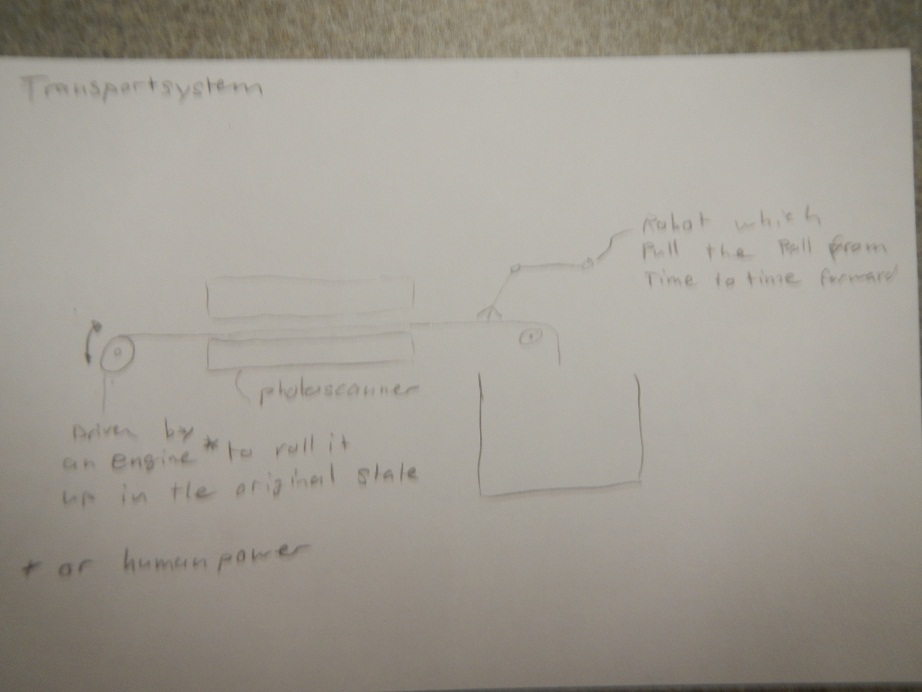 Transportsystem
Robot which
Pull the Roll from
Time to time forward
photoscanner
Driven by
an engine * to roll it
up in the original state
* or humanpower